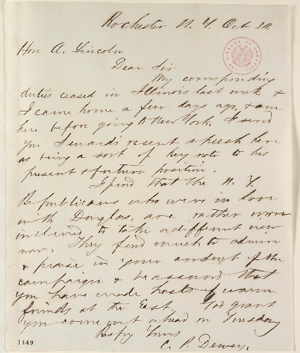 Rochester N. Y. Oct 30
Hon A. Lincoln
Dear Sir
My corresponding
duties ceased in Illinois last week &
I came home a few days ago, & am
here before going to New York. I send
you Seward's recent speech here
as being a sort of key note to his
present & future position.
I find that the N. Y.
Republicans who were in love
with Douglas, are rather more
inclined to take a different view
now. They find much to admire
& praise in your conduct of the
campaign & be assured that
you have made hosts of warm
friends at the East. God grant
you come out ahead on Tuesday
Truly Yours
C. P. Dewey.
1449